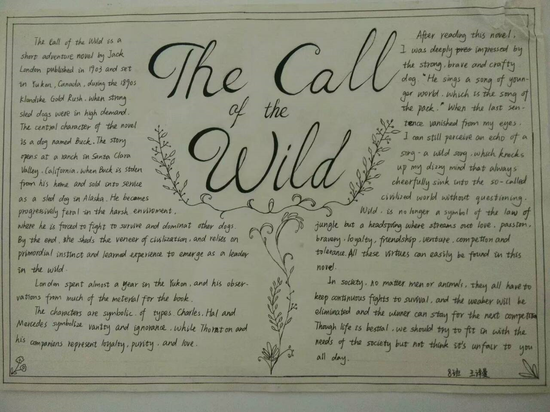 The Call
of the
Wild
The Call of the Wild is a
short adventure novel by Jack
London published in 1903 and set
in Yukon, Canada, during the 1890s
Klondike Gold Rush, when strong
sled dogs were in high demand.
The central character of the novel
is a dog named Buck. The story
opens at a ranch in Santa Clara
Valley, California, when Buck is stolen
from his home and sold into service
as a sled dog in Alaska. He becomes
progressively feral in the harsh enviroment,
where he is forced to fight to survive and dominat other dogs.
By the end, he sheds the veneer of civilization, and relies on
primordial instinct and learned experience to emerge as a leader
in the wild.
London spent almost a year in the Yukon, and his obser-
vations from much of the material for the book.
The characters are symbolic of types Charles, Hal and
Mercedes symbolize vanity and ignorance, while Thornton and
his companions represent loyalty, purity, and love.
After reading this novel,
I was deeply impressed by
the strong, brave and crafty
dog. "He sings a song of youn-
ger world, which is the song of
the pack." When the last sen-
tence vanished from my eyes,
I can still perceive an echo of a
song - a wild song, which knocks
up my dying mind that always
cheerfully sink into the so-called
civilized world without questioning.
Wild, is no longer a symbol of the law of
jungle but a headspring where streams out love, passion,
bravery, loyalty, friendship, venture, competion and
tolerance. All these virtues can easily be found in this
novel.
In society, no matter men or animals, they all have to
keep continuous fights to survial, and the weaker will be
eliminated and the winner can stay for the next competition.
Though life is bestial, we should try to fit in with the
needs of the society but not think it's unfair to you
all day.